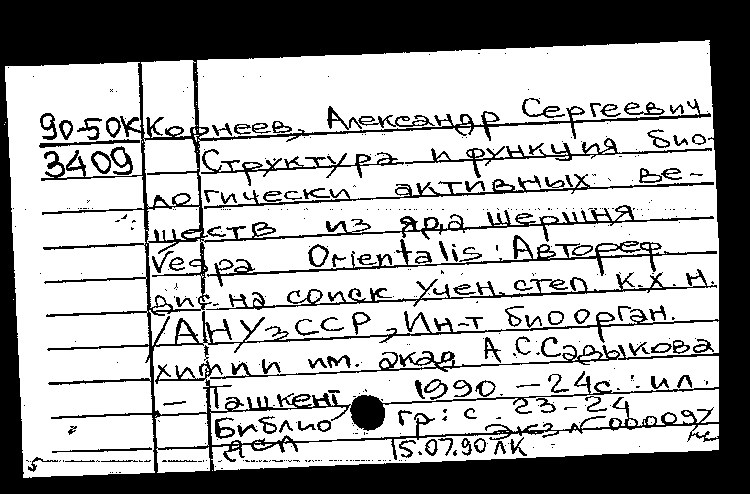 90-50К Корнеев, Александр Сергеевич
3409 Структура и функция био-
логически активных ве-
ществ из яда шершня
Vespa Orientalis: Автореф.
дис. на соиск учен. степ. к.х.н.
/АН УзССР, Ин-т биоорган.
химии им. акад А.С.Садыкова
— Ташкент 1990. - 24с.: ил.
Библиогр: с. 23-24
Экз № 000097
15.07.90 ЛК